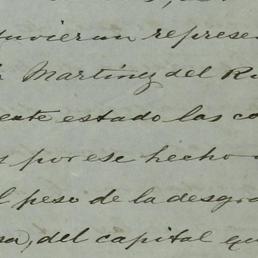 tuvieran represen
Martínez del Rí
ente estado las co
s por ese hecho
l peso de la desgra
sa, del capital qu